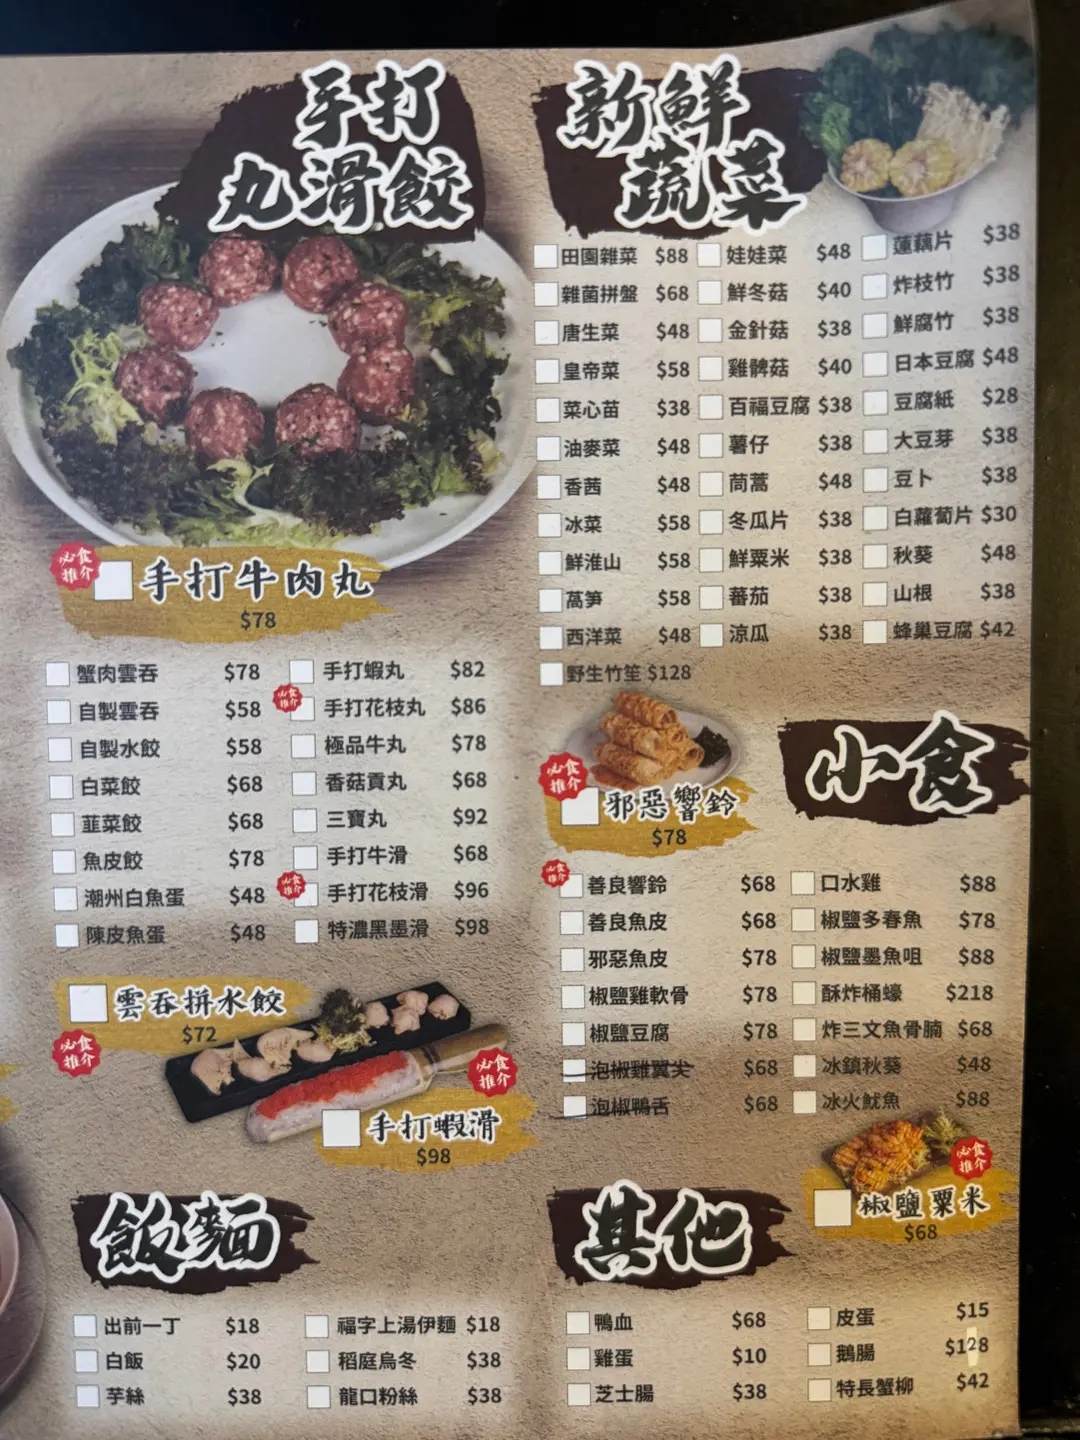 手打
丸滑餃
必食
推介
手打牛肉丸
$78
蟹肉雲吞 $78
自製雲吞 $58
自製水餃 $58
白菜餃 $68
韮菜餃 $68
魚皮餃 $78
潮州白魚蛋 $48
陳皮魚蛋 $48
手打蝦丸 $82
必食
推介
手打花枝丸 $86
極品牛丸 $78
香菇貢丸 $68
三寶丸 $92
手打牛滑 $68
必食
推介
手打花枝滑 $96
特濃黑墨滑 $98
雲吞拼水餃
$72
必食
推介
必食
推介
手打蝦滑
$98
飯麵
出前一丁 $18
白飯 $20
芋絲 $38
福字上湯伊麵 $18
稻庭烏冬 $38
龍口粉絲 $38
新鮮
蔬菜
田園雜菜 $88
雜菌拼盤 $68
唐生菜 $48
皇帝菜 $58
菜心苗 $38
油麥菜 $48
香茜 $48
冰菜 $58
鮮淮山 $58
萵笋 $58
西洋菜 $48
野生竹笙 $128
娃娃菜 $48
鮮冬菇 $40
金針菇 $38
雞髀菇 $40
百福豆腐 $38
薯仔 $38
茼蒿 $48
冬瓜片 $38
鮮粟米 $38
蕃茄 $38
涼瓜 $38
蓮藕片 $38
炸枝竹 $38
鮮腐竹 $38
日本豆腐 $48
豆腐紙 $28
大豆芽 $38
豆卜 $38
白蘿蔔片 $30
秋葵 $48
山根 $38
蜂巢豆腐 $42
小食
必食
推介
邪惡響鈴
$78
必食
推介
善良響鈴 $68
善良魚皮 $68
邪惡魚皮 $78
椒鹽雞軟骨 $78
椒鹽豆腐 $78
泡椒雞翼尖 $68
泡椒鴨舌 $68
口水雞 $88
椒鹽多春魚 $78
椒鹽墨魚咀 $88
酥炸桶蠔 $218
炸三文魚骨腩 $68
冰鎮秋葵 $48
冰火魷魚 $88
必食
推介
椒鹽粟米
$68
其他
鴨血 $68
雞蛋 $10
芝士腸 $38
皮蛋 $15
鵝腸 $128
特長蟹柳 $42